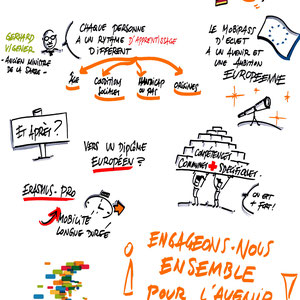 GERHARD
VIGENER
- ANCIEN MINISTRE
DE LA SARRE -
CHAQUE PERSONNE
A UN RYTHME D'APPRENTISSAGE
DIFFÉRENT
ÂGE
CONDITION
SOCIALES
HANDICAP
OU PAS
ORIGINES
LE MOBIPASS
D'ECVET
A UN AVENIR ET
UNE AMBITION
EUROPÉENNE
ET APRÈS ?
VERS UN DIPLÔME
EUROPÉEN ?
COMPÉTENCES
COMMUNES + SPÉCIFIQUES
ON EST
+ FORT !
ERASMUS-PRO
MOBILITÉ
LONGUE DURÉE
ENGAGEONS-NOUS
ENSEMBLE
POUR L'AVENIR